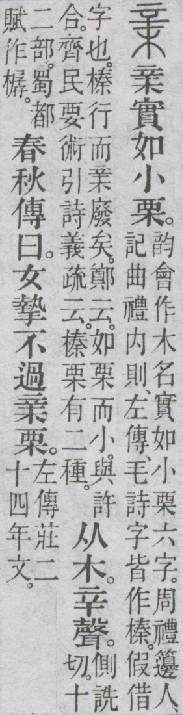 亲實如小栗。韵會作木名實如小栗六字。周禮籩人、記曲禮内則、左傳、毛詩字皆作榛。假借
字也。榛行而亲廢矣。鄭云。如栗而小。與許合。齊民要術引詩義疏云。榛栗有二種。从木。辛聲。側詵切。十
二部。蜀都賦作樼。春秋傳曰。女摯不過亲栗。左傳莊二十四年文。